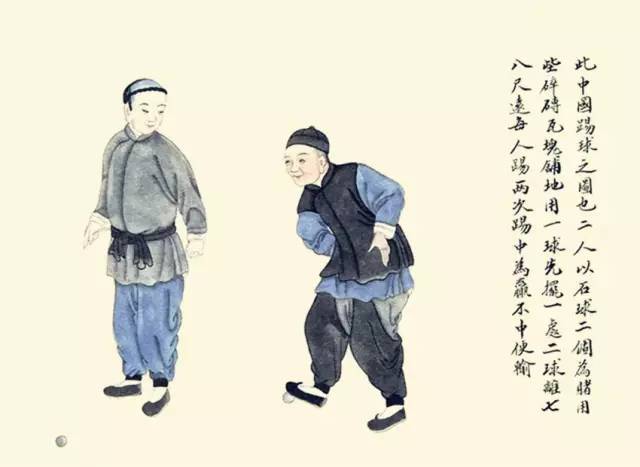 此中國踢球之圖也二人以石球二個為賭用
些碎磚瓦塊鋪地用一球先擺一處二球離七
八尺遠每人踢兩次踢中為贏不中便輸